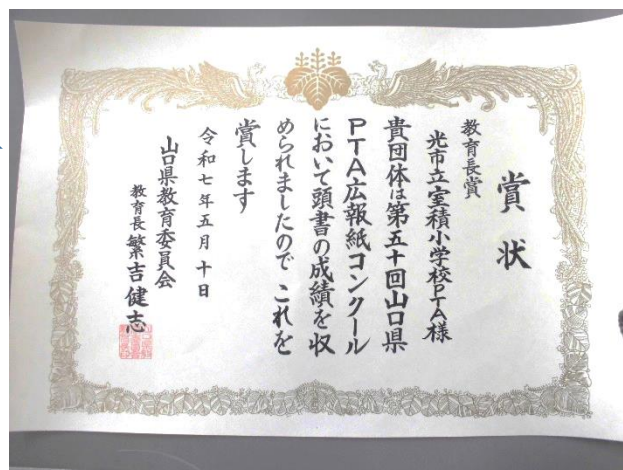 賞状
教育長賞
光市立室積小学校PTA様
貴団体は第五十回山口県
PTA広報紙コンクール
において頭書の成績を収
められましたので これを
賞します
令和七年五月十日
山口県教育委員会
教育長 繁吉健志